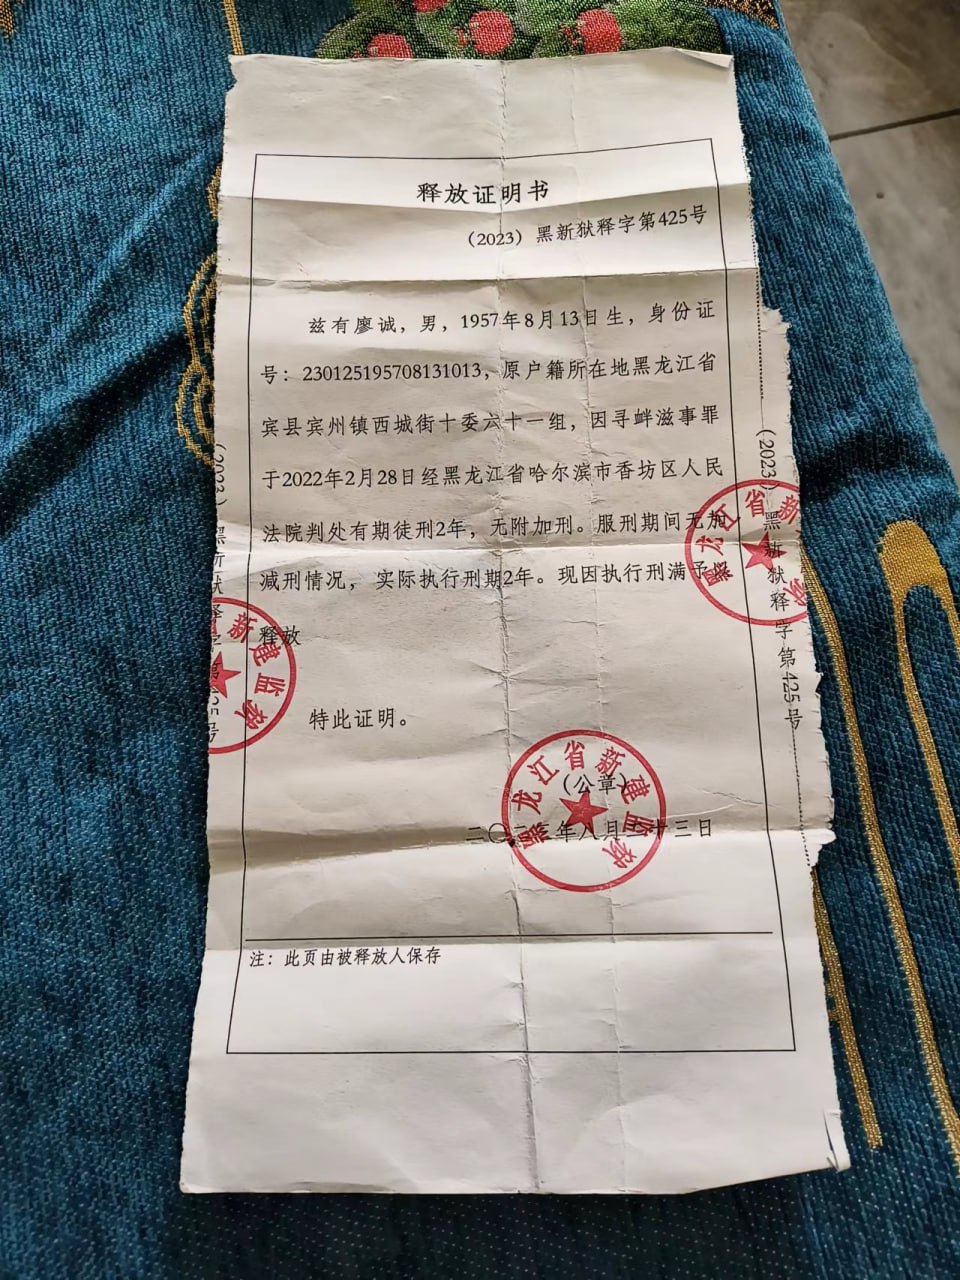 释放证明书
（2023）黑新狱释字第425号
兹有廖诚，男，1957年8月13日生，身份证
号：230125195708131013，原户籍所在地黑龙江省
宾县宾州镇西城街十委六十一组，因寻衅滋事罪
于2022年2月28日经黑龙江省哈尔滨市香坊区人民
法院判处有期徒刑2年，无附加刑。服刑期间无加
减刑情况，实际执行刑期2年。现因执行刑满予以
释放
特此证明。
（公章）
二〇二三年八月二十三日
黑龙江省新建监狱
注：此页由被释放人保存
（2023）黑新狱释字第425号
黑龙江省新 狱
（2023）黑新狱释字第425号
新建监狱